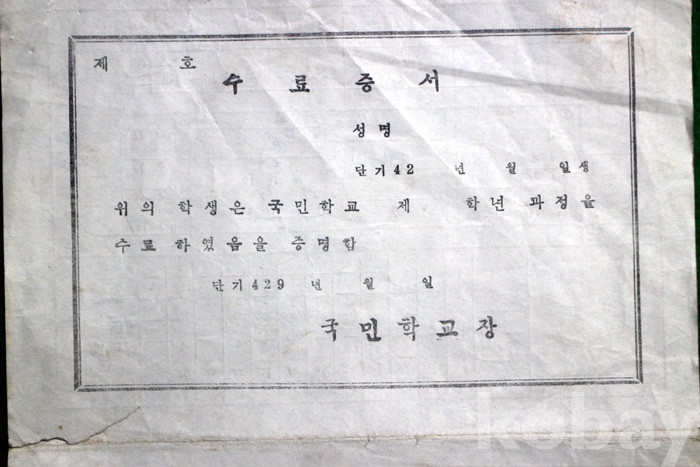 제 호
수 료 증 서
성 명
단기 42 년 월 일생
위의 학생은 국민학교 제 학년 과정을
수료하였음을 증명함
단기 429 년 월 일
국민학교장
kobay